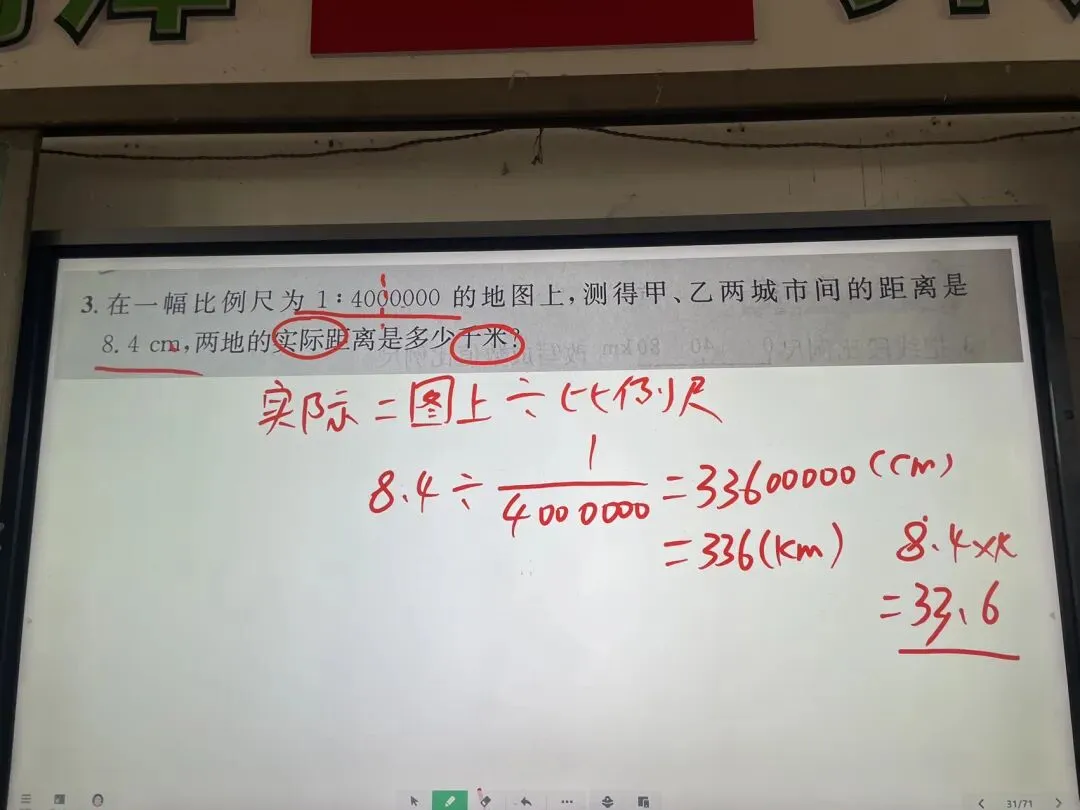 3. 在一幅比例尺为 1∶4000000 的地图上,测得甲、乙两城市间的距离是
8.4 cm,两地的实际距离是多少千米?
实际 = 图上 ÷ 比例尺
8.4 ÷ 1/4000000 = 33600000 (cm)
= 336 (km)
8.4×
= 33.6
31/71